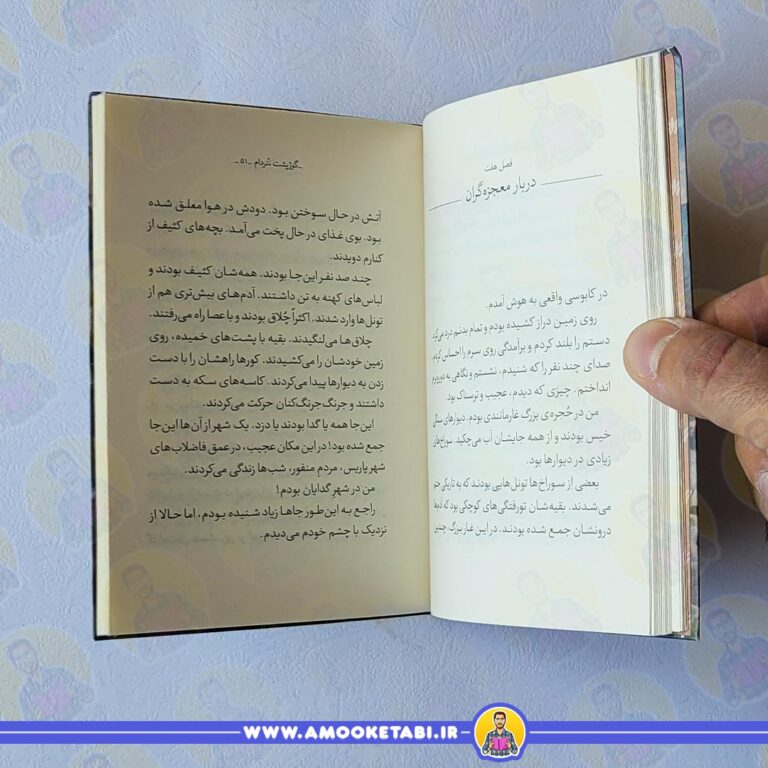 فصل هفت
دربار معجزه‌گران
در کابوسی واقعی به هوش آمدم.
روی زمین دراز کشیده بودم و تمام بدنم درد می‌کرد.
دستم را بلند کردم و برآمدگی روی سرم را احساس کردم.
صدای چند نفر را که شنیدم، نشستم و نگاهی به دوروبرم
انداختم. چیزی که دیدم، عجیب و ترسناک بود.
من در حُجره‌ی بزرگ غارمانندی بودم. دیوارهای سنگی
خیس بودند و از همه جایشان آب می‌چکید. سوراخ‌های
زیادی در دیوارها بود.
بعضی از سوراخ‌ها تونل‌هایی بودند که به تاریکی ختم
می‌شدند. بقیه‌شان تورفتگی‌های کوچکی بود که آدم‌ها
درونشان جمع شده بودند. در این غار بزرگ، چندین
_گوژپشت نتردام _۵۱_
آتش در حال سوختن بود. دودش در هوا معلق شده
بود. بوی غذای در حال پخت می‌آمد. بچه‌های کثیف از
کنارم دویدند.
چند صد نفر این‌جا بودند. همه‌شان کثیف بودند و
لباس‌های کهنه به تن داشتند. آدم‌های بیش‌تری هم از
تونل‌ها وارد شدند. اکثراً چُلاق بودند و با عصا راه می‌رفتند.
چلاق‌ها می‌لنگیدند. بقیه با پشت‌های خمیده، روی
زمین خودشان را می‌کشیدند. کورها راهشان را با دست
زدن به دیوارها پیدا می‌کردند. کاسه‌های سکه به دست
داشتند و جرنگ‌جرنگ‌کنان حرکت می‌کردند.
این‌جا همه یا گدا بودند یا دزد. یک شهر از آن‌ها این‌جا
جمع شده بود! در این مکان عجیب، در عمق فاضلاب‌های
شهر پاریس، مردم منفور، شب‌ها زندگی می‌کردند.
من در شهرِ گدایان بودم!
راجع به این‌طور جاها زیاد شنیده بودم، اما حالا از
نزدیک با چشم خودم می‌دیدم.
WWW.AMOOKETABI.IR